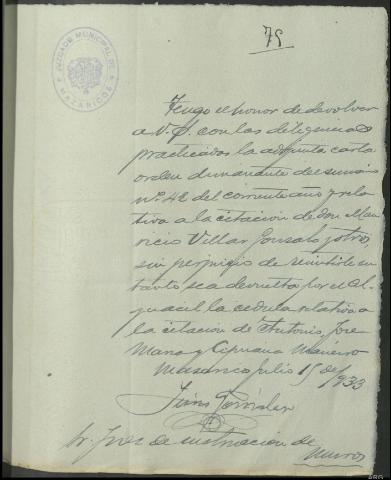 75
JUZGADO MUNICIPAL DE
MAZARICOS
Tengo el honor de devolver
a V. S. con las diligencias
practicadas la adjunta carta
orden dimanante del sumario
nº 42 del corriente año y rela
tiva a la citacion de don Mau
ricio Villar Gonzalo y otros,
sin perjuicio de remitirle en
tanto sea devuelta por el Al
guacil la cedula relativa a
la citacion de Antonio, Jose
Maria y Cipriana
Mazaricos Julio 15 de 1933
Sr. Juez de instruccion de
Muros